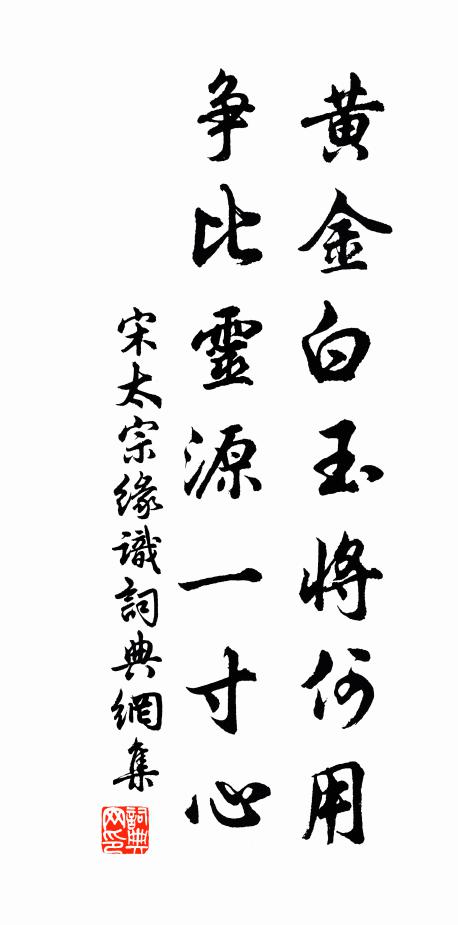 黃金白玉將何用
争比靈源一寸心
宋太宗緣識詞典網集
詞典網印